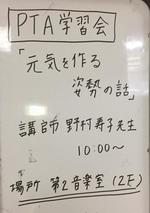 PTA学習会
「元気を作る
姿勢の話」
講師 野村寿子先生
10:00〜
場所 第2音楽室(2F)